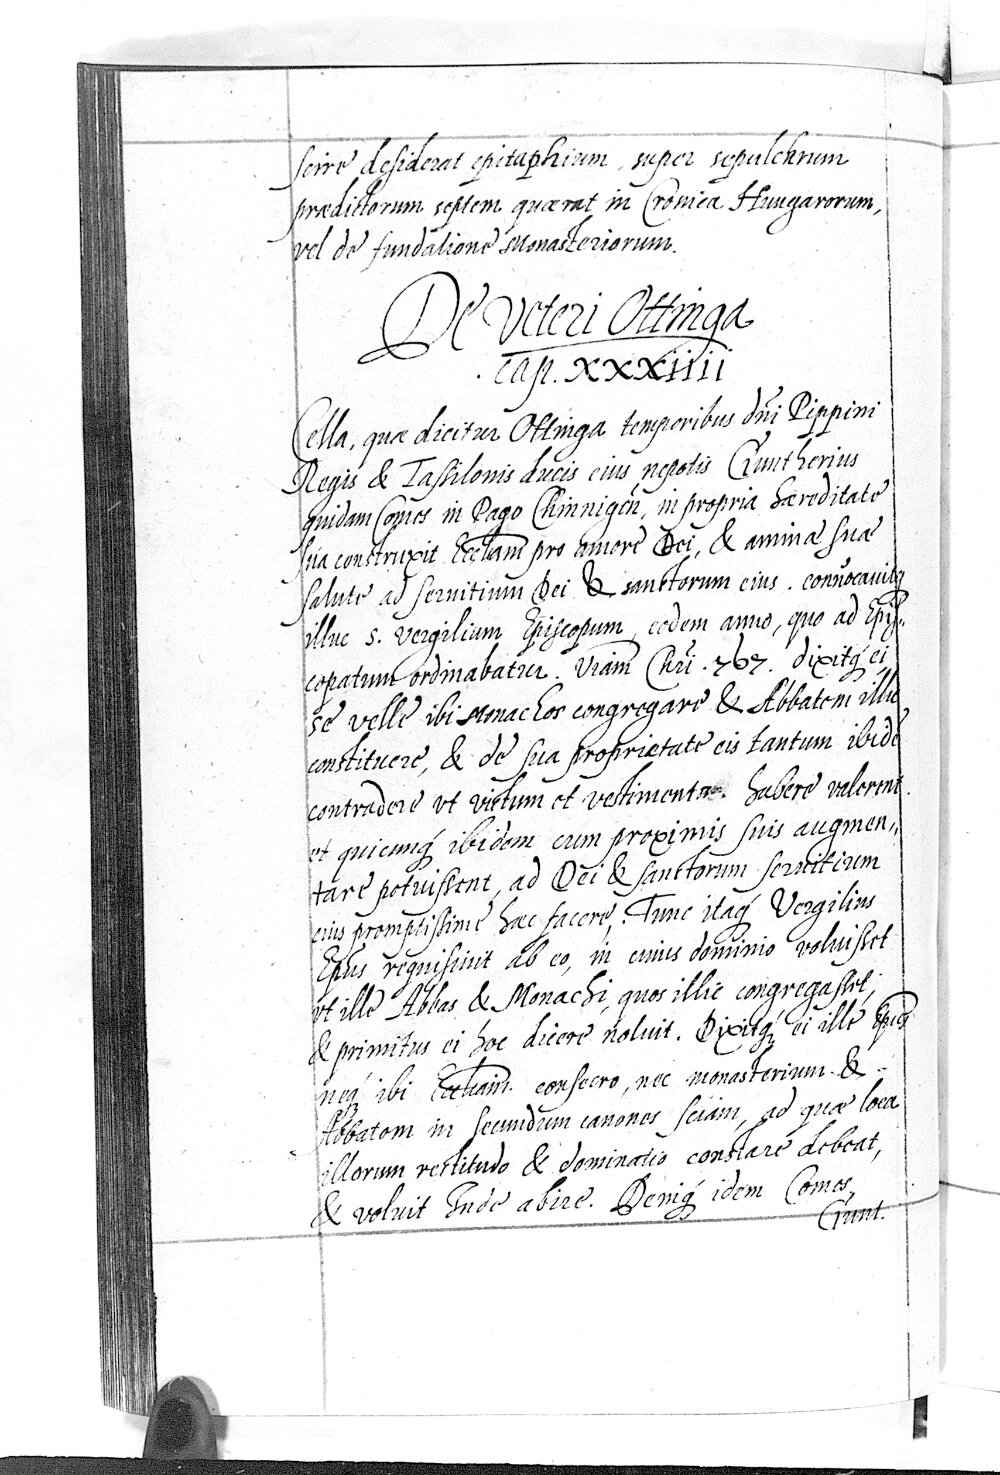 scire desiderat epitaphium, super sepulchrum
prædictorum septem quærat in Cronica Hungarorum,
vel de fundatione Monasteriorum.
De Veteri Ottinga
.cap. XXXiiii
Cella, quæ dicitur Ottinga temporibus dñi Pippini
Regis & Tassilonis ducis eius nepotis Guntherius
quidam Comes in Pago Chinnigeñ, in propria hæreditate
sua construxit Eccliam pro amore Dei, & animæ suæ
salute ad servitium Dei & sanctorum eius. convocavitq
illuc s. Vergilium Episcopum, eodem anno, quo ad Epis„
copatum ordinabatur. Chri. 767. dixitq́ ei,
se velle ibi Monachos congregare & Abbatem illic
constituere, & de sua proprietate eis tantum ibidē
contradere vt victum et vestimenta habere valerent.
et quicunq́ ibidem cum proximis suis augmen„
tare potuissent, ad Dei & sanctorum servitium
eius promptissime hæc facere. Tunc itaq́ Vergilius
Ep̄us requisiuit ab eo, in cuius dominio voluisset
vt ille Abbas & Monachi, quos illic congregasset,
& primitus ei hoc dicere noluit. Dixitq́ ei ille Ep̄us
neq́ ibi Eccliam consecro, nec monasterium &
Abbatem in secundum canones sciam, ad quæ loca
illorum rectitudo & dominatio constare debeat,
& voluit inde abire. Deniq́ idem Comes,
Gunt.